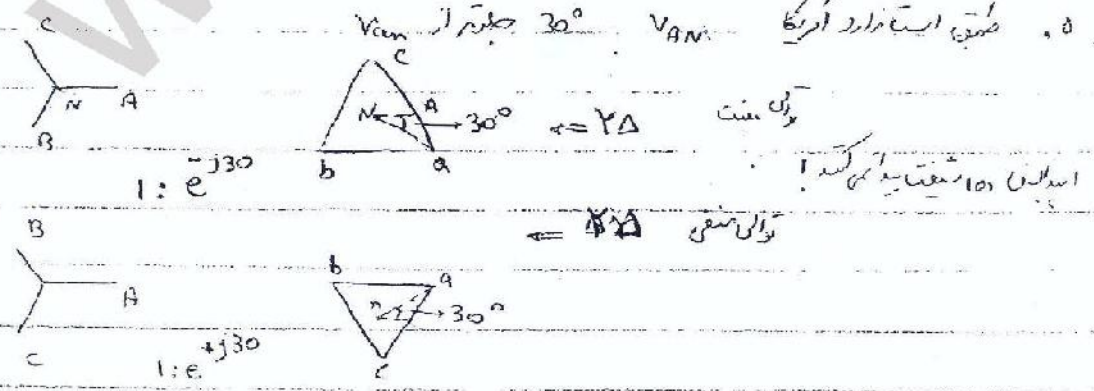 ۵. طبق استاندارد آمریکا V_AN 30° جلوتر از V_an
C
N A
B
C
N A 30°
b a
⇐ YΔ توالی مثبت
1: e^-j30
پیدا نمی کند!
⇐ توالی منفی
B
A
C
b a
n 30°
c
1: e^+j30